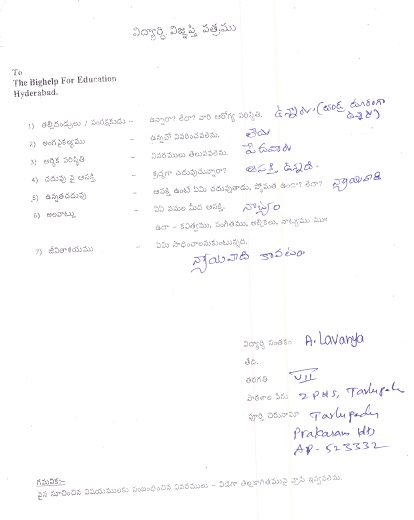 విద్యార్ధి విజ్ఞప్తి పత్రము
To
The Bighelp For Education
Hyderabad.
1) తల్లిదండ్రులు / సంరక్షకుడు – ఉన్నారా? లేదా? వారి ఆరోగ్య పరిస్థితి. ఉన్నారు. (తండ్రి దూరంగా ఉన్నాడు)
2) అంగవైకల్యము – ఉన్నచో వివరించవలెను. లేదు
3) ఆర్ధిక పరిస్థితి – వివరములు తెలుపవలెను. పేదవారు
4) చదువు పై ఆసక్తి – శ్రద్ధగా చదువుచున్నారా? ఆసక్తి ఉన్నది.
5) ఉన్నతచదువు – ఆసక్తి ఉంటే ఏమి చదువుతాడు, స్తోమత ఉందా? లేదా? న్యాయవాది
6) అలవాట్లు – ఏ� పనుల మీద ఆసక్తి. నాట్యం
ఉదా – కవిత్వము, సంగీతము, అల్లికలు, నాట్యము
7) జీవితాశయము – ఏమి సాధించాలనుకుంటున్నది.
న్యాయవాది కావటం
విద్యార్ధి సంతకం A. Lavanya
తేది.
తరగతి VII
పాఠశాల పేరు ZPHS,
పూర్తి చిరునామా
Prakasam
AP-523332
గమనిక:-
పైన సూచించిన విషయములకు సంబంధించిన వివరములు – విడిగా తెల్లకాగితముపై వ్రాసి ఇవ్వవలెను.